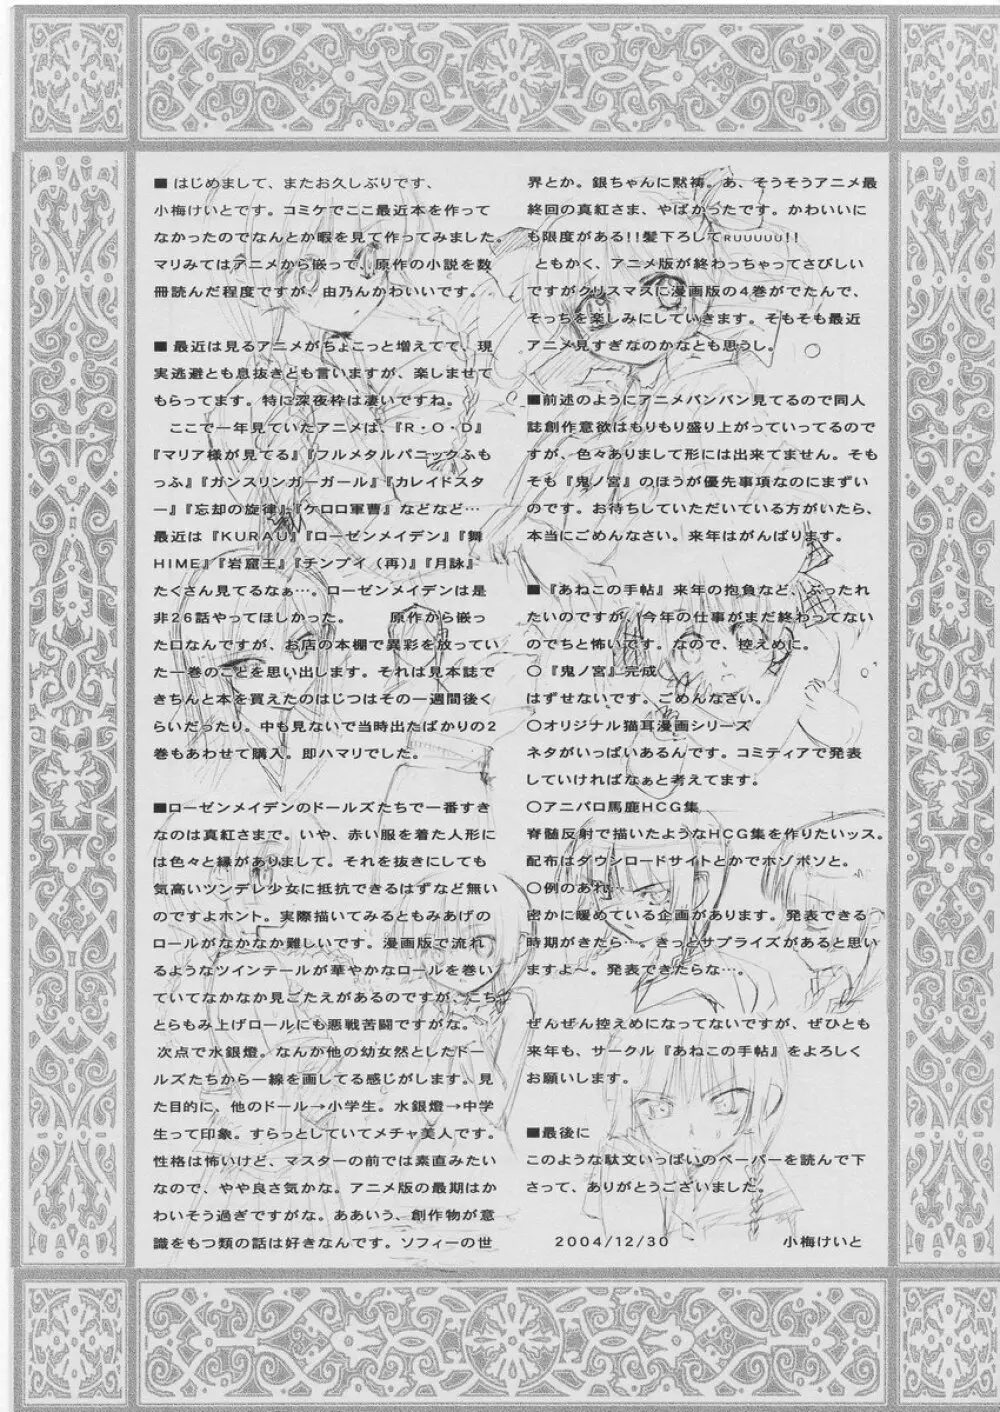 ■ はじめまして、またお久しぶりです、
小梅けいとです。コミケでここ最近本を作って
なかったのでなんとか暇を見て作ってみました。
マリみてはアニメから嵌って、原作の小説を数
冊読んだ程度ですが、由乃んかわいいです。
■ 最近は見るアニメがちょこっと増えてて、現
実逃避とも息抜きとも言いますが、楽しませて
もらってます。特に深夜枠は凄いですね。
ここで一年見ていたアニメは、『R・O・D』
『マリア様が見てる』『フルメタルパニックふも
っふ』『ガンスリンガーガール』『カレイドスタ
ー』『忘却の旋律』『ケロロ軍曹』などなど…
最近は『KURAU』『ローゼンメイデン』『舞
HIME』『岩窟王』『チンプイ（再）』『月詠』
たくさん見てるなぁ…。ローゼンメイデンは是
非26話やってほしかった。 原作から嵌っ
た口なんですが、お店の本棚で異彩を放ってい
た一巻のことを思い出します。それは見本誌で
きちんと本を買えたのはじつはその一週間後く
らいだったり。中も見ないで当時出たばかりの2
巻もあわせて購入。即ハマリでした。
■ローゼンメイデンのドールズたちで一番すき
なのは真紅さまで。いや、赤い服を着た人形に
は色々と縁がありまして。それを抜きにしても
気高いツンデレ少女に抵抗できるはずなど無い
のですよホント。実際描いてみるともみあげの
ロールがなかなか難しいです。漫画版で流れ
るようなツインテールが華やかなロールを巻い
ていてなかなか見ごたえがあるのですが、こち
とらもみ上げロールにも悪戦苦闘ですがな。
次点で水銀燈。なんか他の幼女然としたドー
ルズたちから一線を画してる感じがします。見
た目的に、他のドール→小学生。水銀燈→中学
生って印象。すらっとしていてメチャ美人です。
性格は怖いけど、マスターの前では素直みたい
なので、やや良さ気かな。アニメ版の最期はか
わいそう過ぎですがな。ああいう、創作物が意
識をもつ類の話は好きなんです。ソフィーの世
界とか。銀ちゃんに黙祷。あ、そうそうアニメ最
終回の真紅さま、やばかったです。かわいいに
も限度がある!!髪下ろしてRUUUUU!!
ともかく、アニメ版が終わっちゃってさびしい
ですがクリスマスに漫画版の4巻がでたんで、
そっちを楽しみにしていきます。そもそも最近
アニメ見すぎなのかなとも思うし。
■前述のようにアニメバンバン見てるので同人
誌創作意欲はもりもり盛り上がっていってるので
すが、色々ありまして形には出来てません。そも
そも『鬼ノ宮』のほうが優先事項なのにまずい
のです。お待ちしていただいている方がいたら、
本当にごめんなさい。来年はがんばります。
■『あねこの手帖』来年の抱負など、ぶったれ
たいのですが、今年の仕事がまだ終わってない
のでちと怖いです。なので、控えめに。
○『鬼ノ宮』完成
はずせないです、ごめんなさい。
○オリジナル猫耳漫画シリーズ
ネタがいっぱいあるんです。コミティアで発表
していければなぁと考えてます。
○アニパロ馬鹿HCG集
脊髄反射で描いたようなHCG集を作りたいッス。
配布はダウンロードサイトとかでホソボソと。
○例のあれ…
密かに暖めている企画があります。発表できる
時期がきたら…。きっとサプライズがあると思い
ますよ〜。発表できたらな…。
ぜんぜん控えめになってないですが、ぜひとも
来年も、サークル『あねこの手帖』をよろしく
お願いします。
■最後に
このような駄文いっぱいのペーパーを読んで下
さって、ありがとうございました。
2004/12/30 小梅けいと